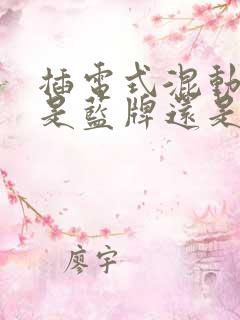 插電式混動
是藍牌還是
廖宇